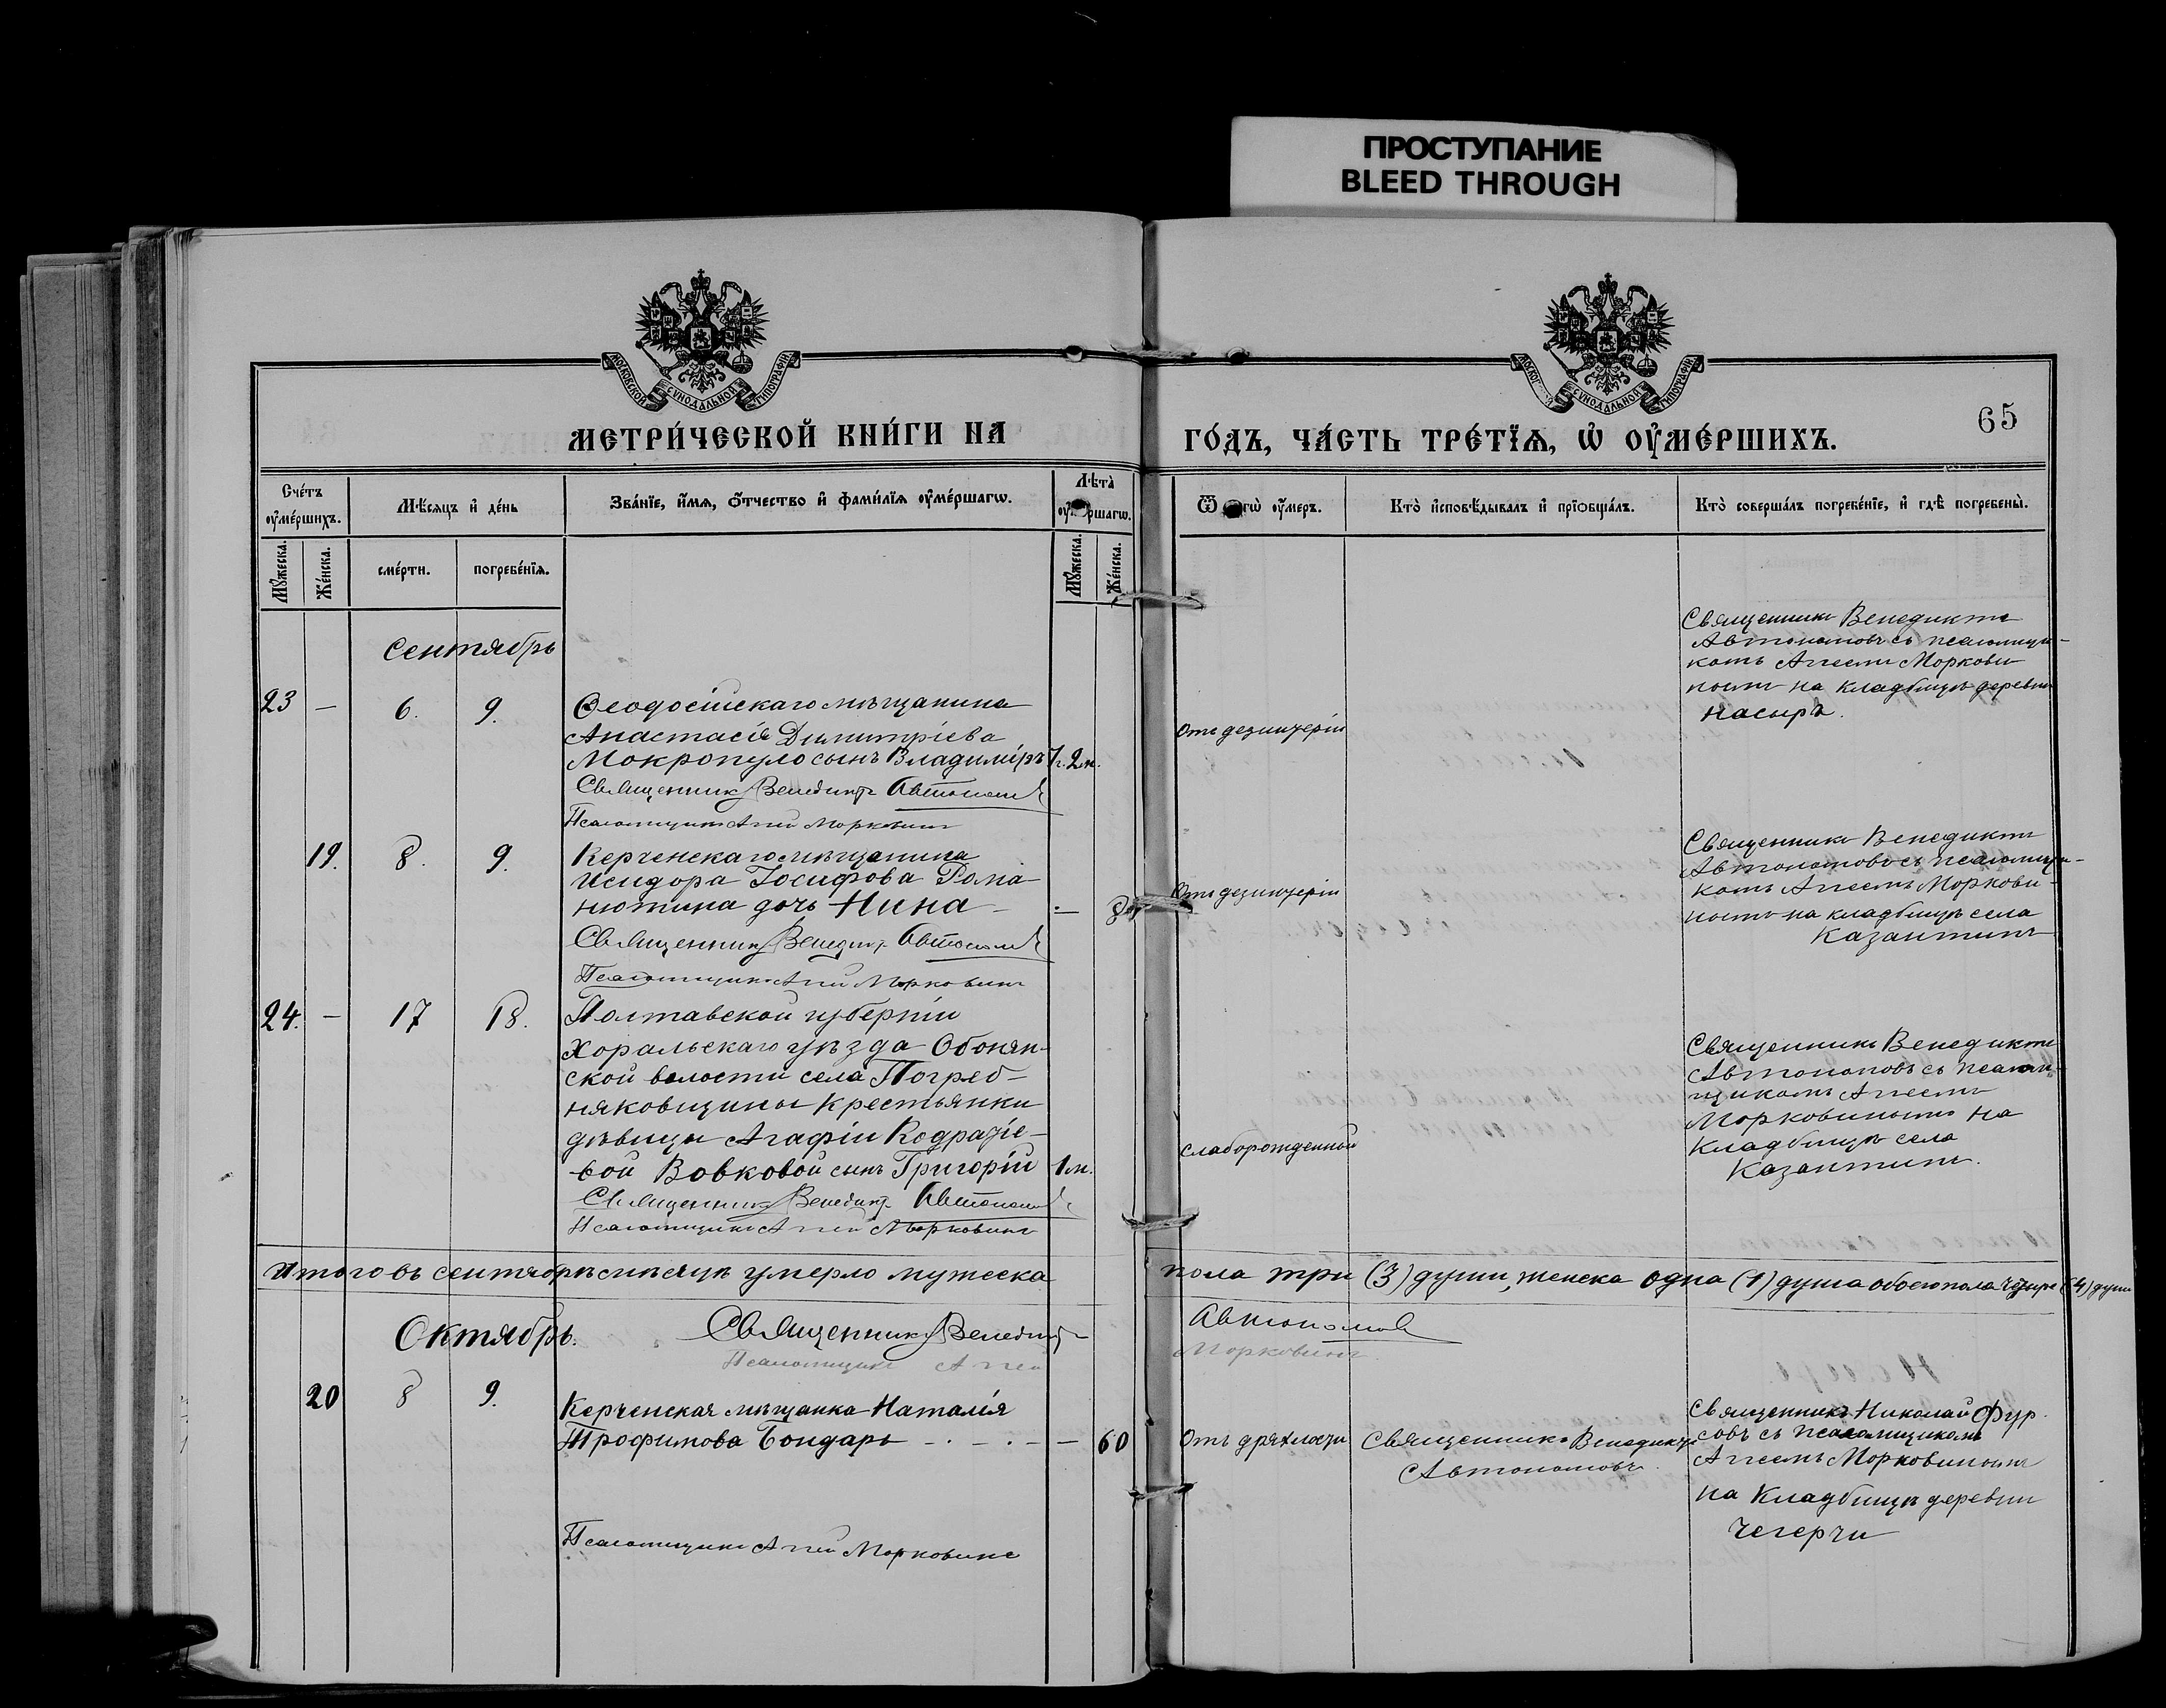 ПРОСТУПАНИЕ
BLEED THROUGH
МОСКОВСКОЙ СѴНОДАЛЬНОЙ ТИПОГРАФІИ
СѴНОДАЛЬНОЙ ТИПОГРАФІИ
МЕТРИ́ЧЕСКОЙ КНИ́ГИ НА
ГО́ДЪ, ЧА́СТЬ ТРЕ́ТЇѦ, Ѡ҆ ОУ҆МЕ́РШИХЪ.
65
Сче́тъ оу҆ме́ршихъ.
Мѣ́сяцъ и҆ де́нь
Зва́нїе, и҆́мя, ѻ҆́тчество и҆ фами́лїя оу҆ме́ршагѡ.
Лѣта̀
Кто̀ и҆сповѣ́дывалъ и҆ прїѻбща́лъ.
Кто̀ соверша́лъ погребе́нїе, и҆ гдѣ̀ погребены̀.
Мꙋ́жеска. Же́нска.
сме́рти. погребе́нїя.
Мꙋ́жеска. Же́нска.
Сентябрь
23 — 6. 9.
Ѳеодосійскаго мѣщанина
Анастасія Димитріева
Мокропуло сынъ Владиміръ 1 г. 2 м.
Священникъ Венедиктъ Автономовъ
Псаломщикъ Аггей Морковинъ
Отъ дезинтеріи
Священникъ Венедиктъ
Автономовъ съ псаломщи-
комъ Аггеемъ Моркови
нымъ на кладбищѣ деревни
Насыръ.
19. 8. 9.
Керченскаго мѣщанина
Исидора Іосифова Рома-
нютина дочь Нина —
Священникъ Венедиктъ Автономовъ
Псаломщикъ Аггей Морковинъ
Отъ дезинтеріи
Священникъ Венедиктъ
Автономовъ съ псаломщи-
комъ Аггеемъ Моркови-
нымъ на кладбищѣ села
Казантипъ
24. — 17 18.
Полтавской губерніи
Хоральскаго уѣзда Обонян-
ской волости села Погреб-
няковщины крестьянки
дѣвицы Агафіи Кодратіе-
вой Вовковой сынъ Григорій 1 м.
Священникъ Венедиктъ Автономовъ
Псаломщикъ Аггей Морковинъ
Слаборожденный
Священникъ Венедиктъ
Автономовъ съ псалом-
щикомъ Аггеемъ
Морковинымъ на
кладбищѣ села
Казантипъ.
Итого въ сентябрѣ мѣсяцѣ умерло мужеска пола три (3) души, женска одна (1) душа обоего пола четыре (4) души
Октябрь.
Священникъ Венедиктъ Автономовъ
Псаломщикъ Аггей Морковинъ
20 8 9.
Керченская мѣщанка Наталія
Трофимова Бондарь — 60
Отъ дряхлости
Священникъ Венедиктъ
Автономовъ.
Священникъ Николай Фур-
совъ съ псаломщикомъ
Аггеемъ Морковинымъ
на кладбищѣ деревни
Чегерчи
Псаломщикъ Аггей Морковинъ